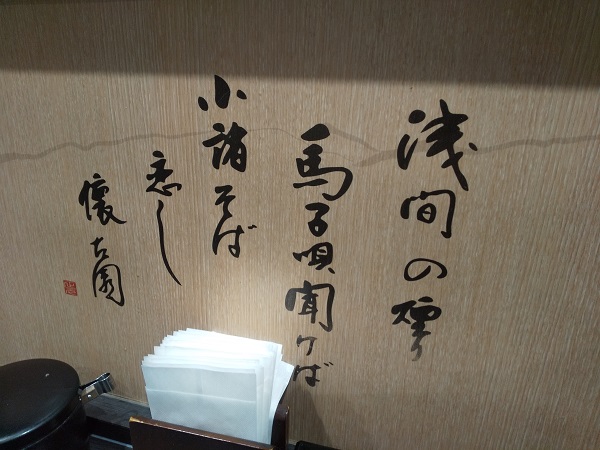 浅間の煙
馬子唄聞けば
小諸そば
恋し
懐古園